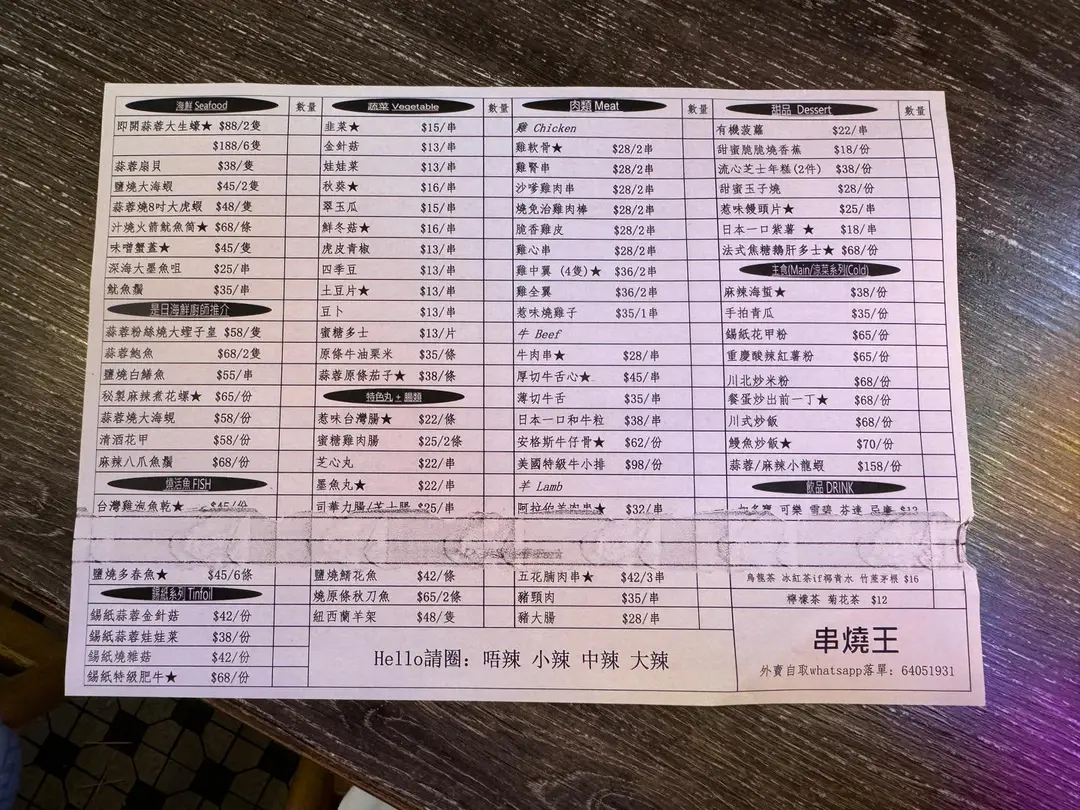 海鮮 Seafood 數量
即開蒜蓉大生蠔★ $88/2隻
$188/6隻
蒜蓉扇貝 $38/隻
鹽燒大海蝦 $45/2隻
蒜蓉燒8吋大虎蝦 $48/隻
汁燒火箭魷魚筒★ $68/條
味噌蟹蓋★ $45/隻
深海大墨魚咀 $25/串
魷魚鬚 $35/串
是日海鮮廚師推介
蒜蓉粉絲燒大蟶子皇 $58/隻
蒜蓉鮑魚 $68/2隻
鹽燒白鱔魚 $55/串
秘製麻辣煮花螺★ $65/份
蒜蓉燒大海蜆 $58/份
清酒花甲 $58/份
麻辣八爪魚鬚 $68/份
燒活魚 FISH
台灣雞泡魚乾★ $45/份
鹽燒多春魚★ $45/6條
錫紙系列 Tinfoil
錫紙蒜蓉金針菇 $42/份
錫紙蒜蓉娃娃菜 $38/份
錫紙燒雜菇 $42/份
錫紙特級肥牛★ $68/份
蔬菜 Vegetable 數量
韭菜★ $15/串
金針菇 $13/串
娃娃菜 $13/串
秋葵★ $16/串
翠玉瓜 $15/串
鮮冬菇★ $16/串
虎皮青椒 $13/串
四季豆 $13/串
土豆片★ $13/串
豆卜 $13/串
蜜糖多士 $13/片
原條牛油粟米 $35/條
蒜蓉原條茄子★ $38/條
特色丸 + 腸類
惹味台灣腸★ $22/條
蜜糖雞肉腸 $25/2條
芝心丸 $22/串
墨魚丸★ $22/串
司華力腸/芝士腸 $25/串
鹽燒鯖花魚 $42/條
燒原條秋刀魚 $65/2條
紐西蘭羊架 $48/隻
肉類 Meat 數量
雞 Chicken
雞軟骨★ $28/2串
雞腎串 $28/2串
沙嗲雞肉串 $28/2串
燒免治雞肉棒 $28/2串
脆香雞皮 $28/2串
雞心串 $28/2串
雞中翼 (4隻)★ $36/2串
雞全翼 $36/2串
惹味燒雞子 $35/1串
牛 Beef
牛肉串★ $28/串
厚切牛舌心★ $45/串
薄切牛舌 $35/串
日本一口和牛粒 $38/串
安格斯牛仔骨★ $62/份
美國特級牛小排 $98/份
羊 Lamb
阿拉伯羊肉串★ $32/串
五花腩肉串★ $42/3串
豬頸肉 $35/串
豬大腸 $28/串
甜品 Dessert 數量
有機菠蘿 $22/串
甜蜜脆脆燒香蕉 $18/份
流心芝士年糕(2件) $38/份
甜蜜玉子燒 $28/份
惹味饅頭片★ $25/串
日本一口紫薯 ★ $18/串
法式焦糖鵝肝多士★ $68/份
主食(Main/涼菜系列(Cold)
麻辣海蜇★ $38/份
手拍青瓜 $35/份
錫紙花甲粉 $65/份
重慶酸辣紅薯粉 $65/份
川北炒米粉 $68/份
餐蛋炒出前一丁★ $68/份
川式炒飯 $68/份
鰻魚炒飯★ $70/份
蒜蓉/麻辣小龍蝦 $158/份
飲品 DRINK
加多寶 可樂 雪碧 芬達 忌廉 $12
烏龍茶 冰紅茶if椰青水 竹蔗茅根 $16
檸檬茶 菊花茶 $12
Hello請圈: 唔辣 小辣 中辣 大辣
串燒王
外賣自取whatsapp落單: 64051931